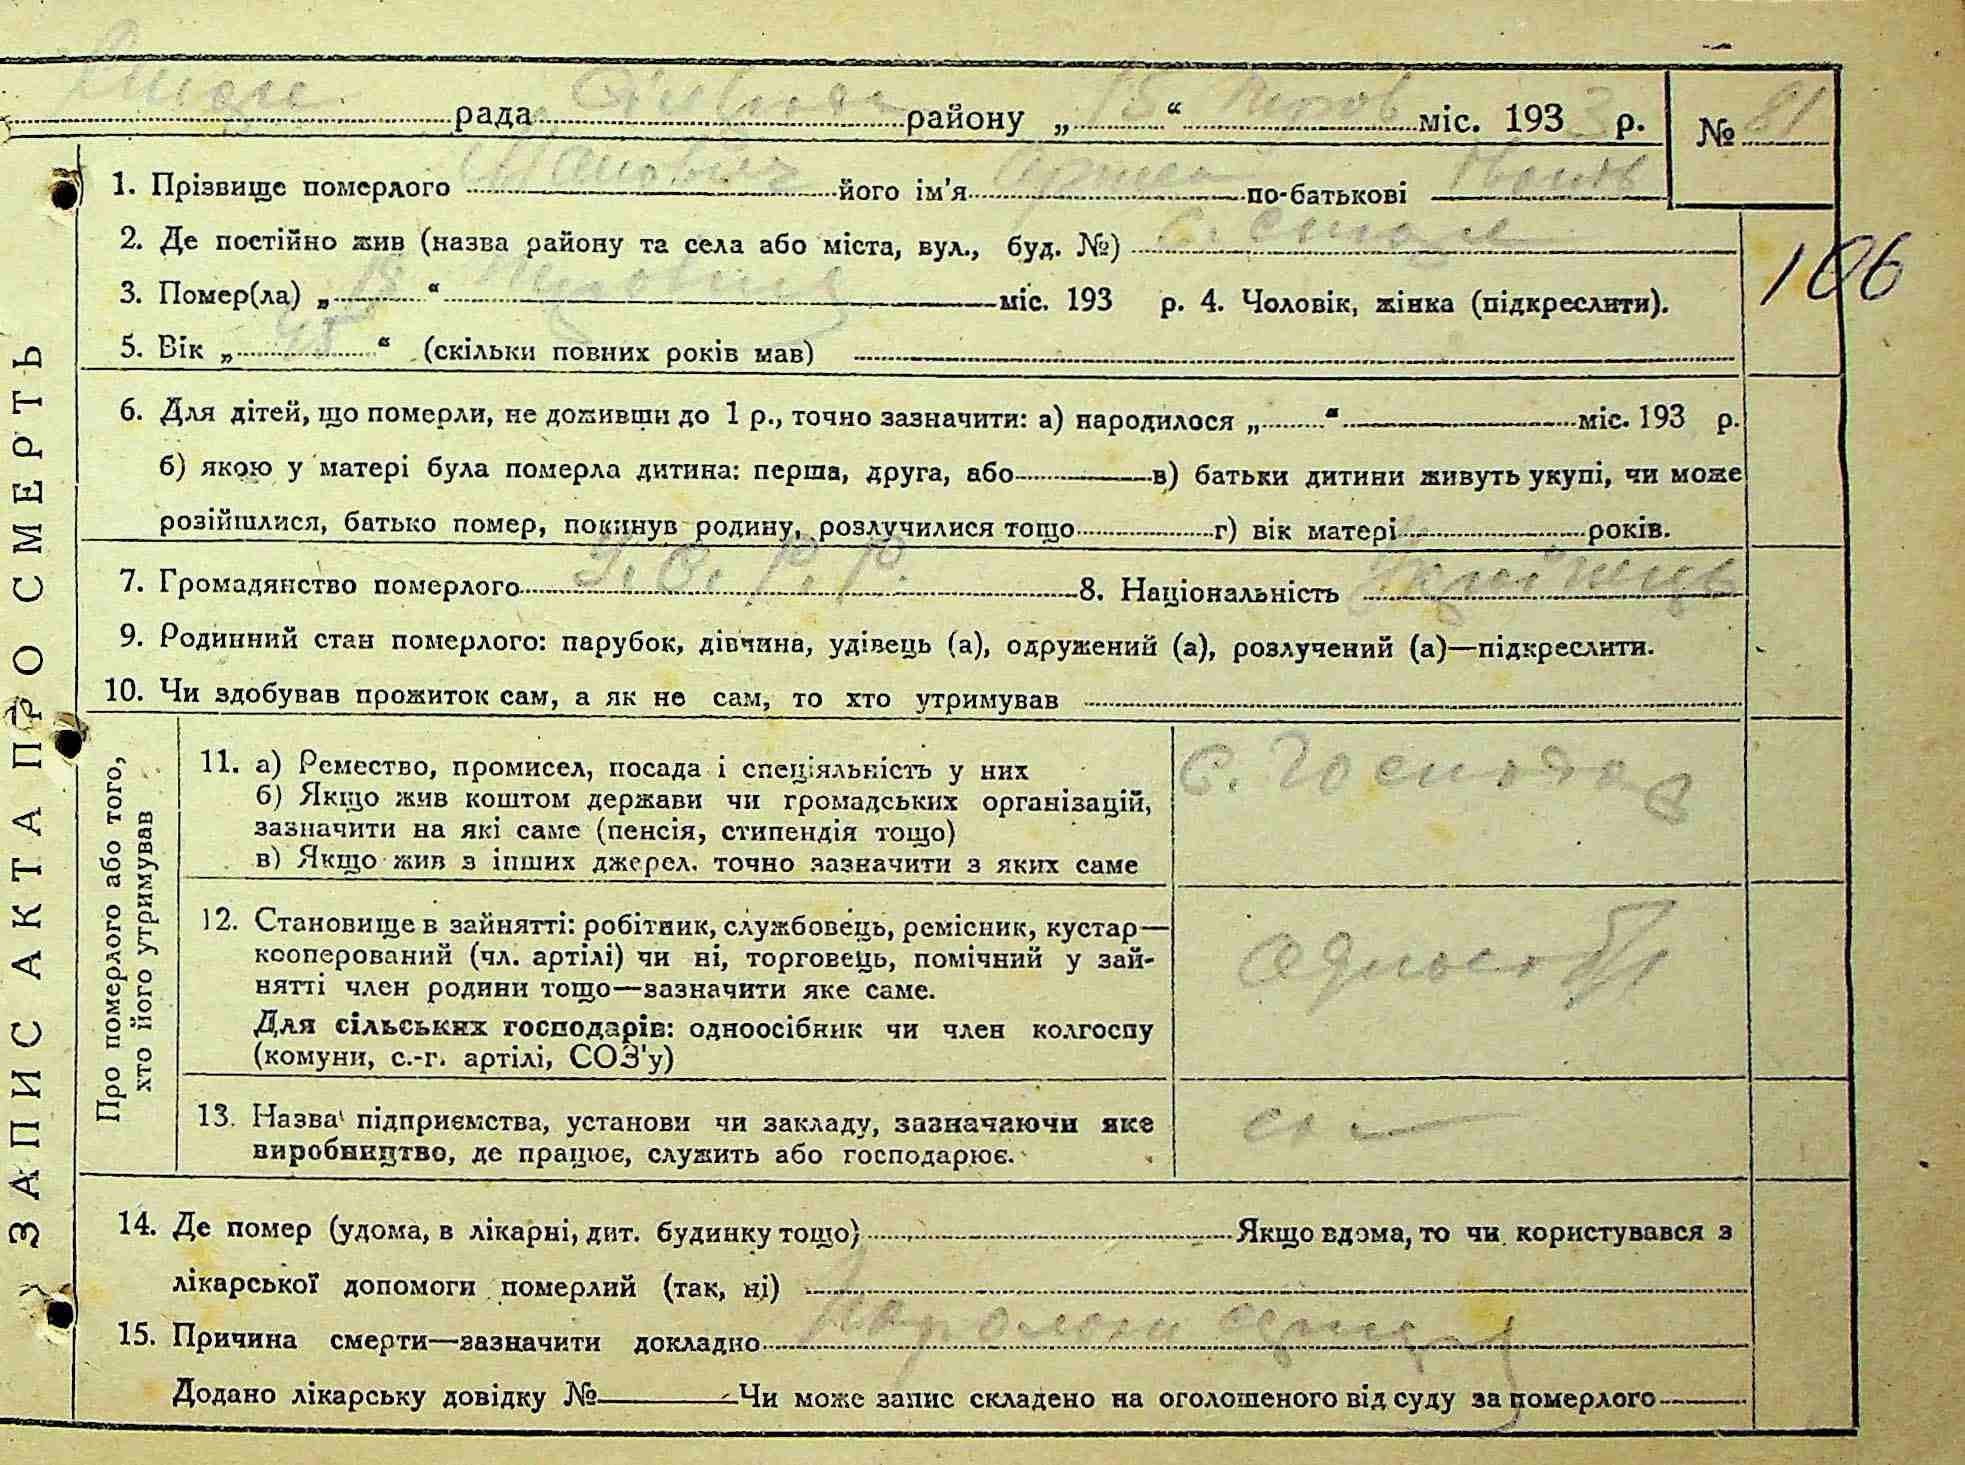 рада района району „ 15 “ міс. 193 3 р. № 81
1. Прізвище померлого його ім'я по-батькові
2. Де постійно жив (назва району та села або міста, вул., буд. №) с.
3. Помер(ла) „ “ міс. 193 р. 4. Чоловік, жінка (підкреслити).
106
5. Вік „ 45 “ (скільки повних років мав)
6. Для дітей, що померли, не доживши до 1 р., точно зазначити: а) народилося „ “ міс. 193 р.
б) якою у матері була померла дитина: перша, друга, або в) батьки дитини живуть укупі, чи може
розійшлися, батько помер, покинув родину, розлучилися тощо г) вік матері років.
7. Громадянство померлого У.С.Р.Р. 8. Національність Українець
9. Родинний стан померлого: парубок, дівчина, удівець (а), одружений (а), розлучений (а)—підкреслити.
10. Чи здобував прожиток сам, а як не сам, то хто утримував
ЗАПИС АКТА ПРО СМЕРТЬ
Про померлого або того,
хто його утримував
11. а) Ремество, промисел, посада і спеціяльність у них
б) Якщо жив коштом держави чи громадських організацій,
зазначити на які саме (пенсія, стипендія тощо)
в) Якщо жив з інших джерел, точно зазначити з яких саме
12. Становище в зайнятті: робітник, службовець, ремісник, кустар—
кооперований (чл. артілі) чи ні, торговець, помічний у зай-
нятті член родини тощо—зазначити яке саме.
Для сільських господарів: одноосібник чи член колгоспу
(комуни, с.-г. артілі, СОЗ'у)
13. Назва підприємства, установи чи закладу, зазначаючи яке
виробництво, де працює, служить або господарює.
14. Де помер (удома, в лікарні, дит. будинку тощо) Якщо вдома, то чи користувався з
лікарської допомоги померлий (так, ні)
15. Причина смерти—зазначити докладно
Додано лікарську довідку № Чи може запис складено на оголошеного від суду за померлого